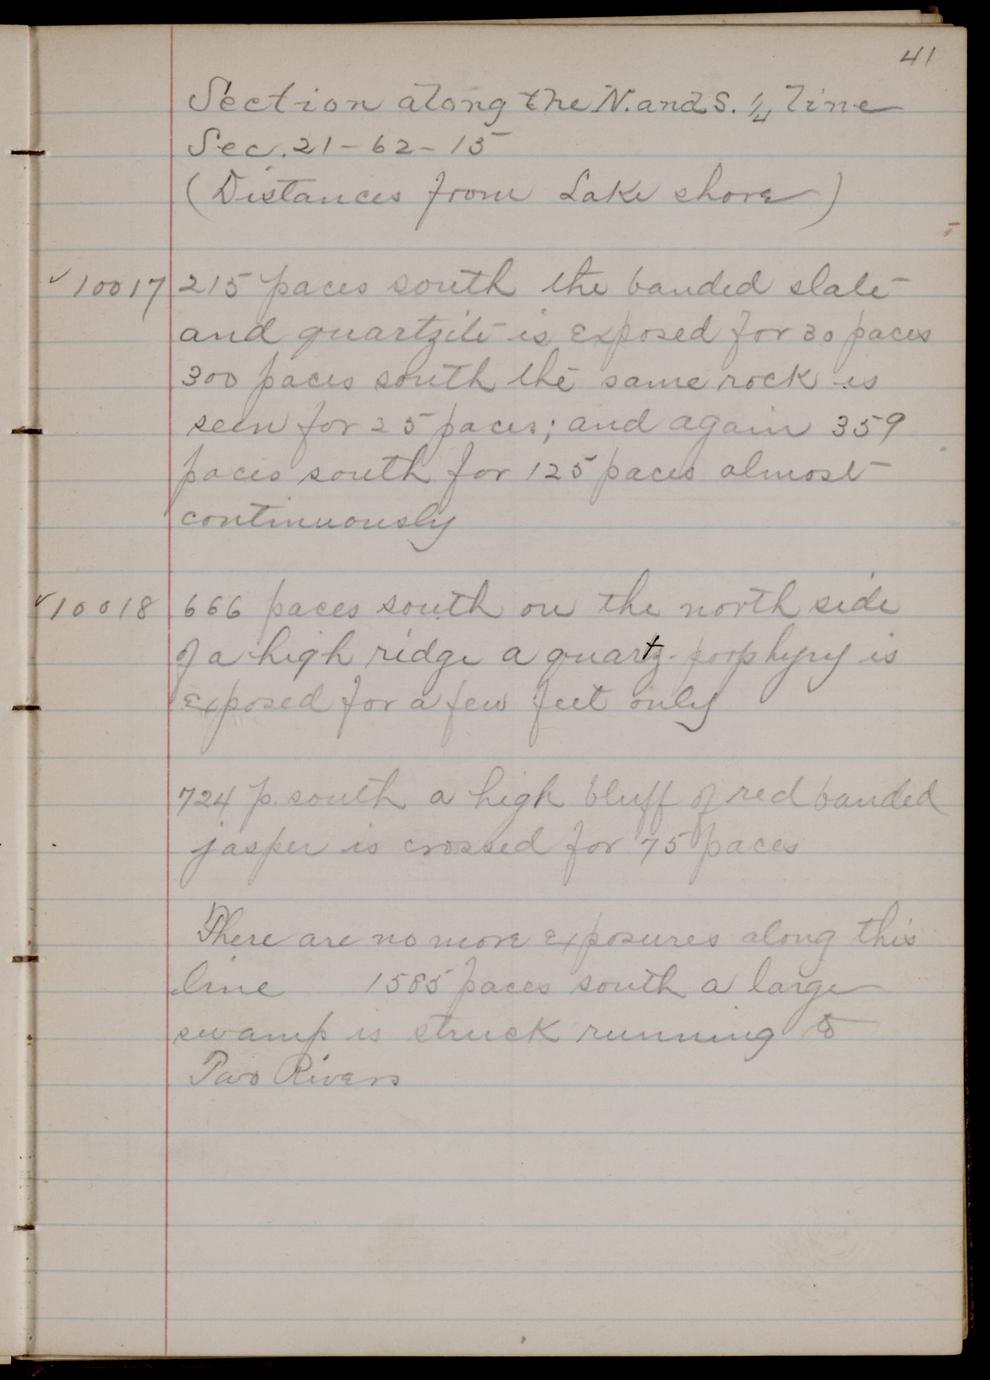 41
Section along the N. and S. 1/4 line
Sec. 21-62-15
(Distances from Lake shore)
✓10017 215 paces south the banded slate
and quartzite is exposed for 30 paces
300 paces south the same rock is
seen for 25 paces; and again 359
paces south for 125 paces almost
continuously
✓10018 666 paces south on the north side
of a high ridge a quartz-porphyry is
exposed for a few feet only
724 p. south a high bluff of red banded
jasper is crossed for 75 paces
There are no more exposures along this
line 1585 paces south a large
swamp is struck running to
Two Rivers